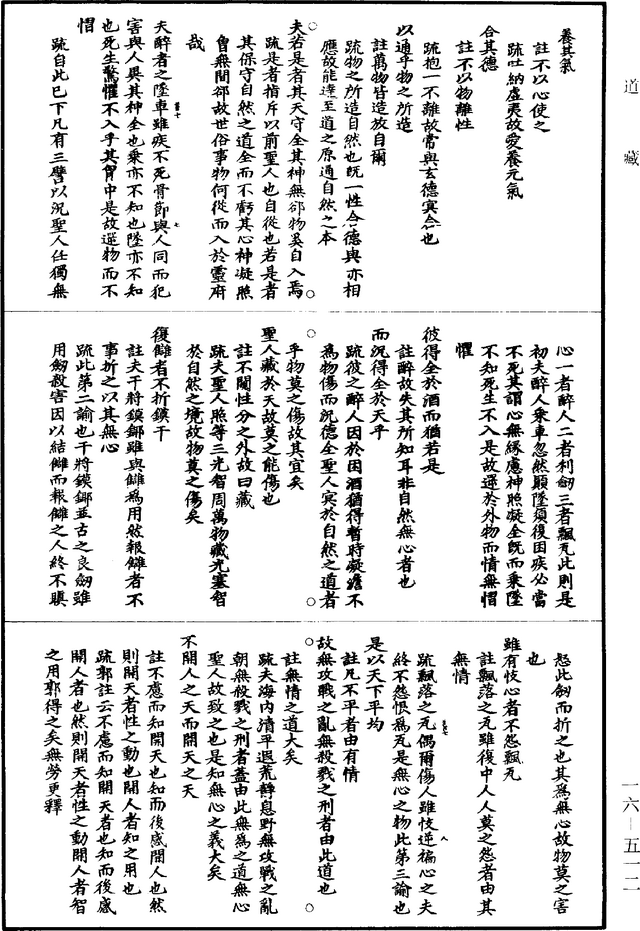 道藏
養其氣
註不以心使之
疏吐納虛夷故愛養元氣
合其德
註不以物離性
疏抱一不離故常與玄德冥合也
以通乎物之所造
註萬物皆造於自爾
疏物之所造自然也既一性合德與亦相
應故能達至道之原通自然之本
夫若是者其天守全其神無郤物奚自入焉
疏是者指斥以前聖人也自從也若是者
其保守自然之道全而不虧其心神凝照
曾無間郤故世俗事物何從而入於靈府
哉
夫醉者之墜車雖疾不死骨節與人同而犯
害與人異其神全也乘亦不知也墜亦不知
也死生驚懼不入乎其胷中是故遻物而不
慴
疏自此已下凡有三譬以況聖人任獨無
心一者醉人二者利劒三者飄瓦此則是
初夫醉人乘車忽然顛墜須復困疾必當
不死其謂心無緣慮神照凝全既而乘墜
不知死生不入是故遻於外物而情無慴
懼
彼得全於酒而猶若是
註醉故失其所知耳非自然無心者也
而況得全於天乎
疏彼之醉人因於困酒猶得暫時凝澹不
為物傷而況德全聖人冥於自然之道者
乎物莫之傷故其宜矣
聖人藏於天故莫之能傷也
註不闚性分之外故曰藏
疏夫聖人照等三光智周萬物藏光塞智
於自然之境故物莫之傷矣
復讎者不折鏌干
註夫干將鏌鋣雖與讎為用然報讎者不
事折之以其無心
疏此第二諭也干將鏌鋣並古之良劒雖
用劒殺害因以結讎而報讎之人終不瞋
怒此劒而折之也其為無心故物莫之害
也
雖有忮心者不怨飄瓦
註飄落之瓦雖復中人人莫之怨者由其
無情
疏飄落之瓦偶爾傷人雖忮逆褊心之夫
終不怨恨為瓦是無心之物此第三諭也
是以天下平均
註凡不平者由有情
故無攻戰之亂無殺戮之刑者由此道也
註無情之道大矣
疏夫海內清平遐荒靜息野無攻戰之亂
朝無殺戮之刑者蓋由此無為之道無心
聖人故致之也是知無心之義大矣
不開人之天而開天之天
註不慮而知開天也知而後感開人也然
則開天者性之動也開人者知之用也
疏郭註云不慮而知開天者也知而後感
開人者也然則開天者性之動開人者智
之用郭得之矣無勞更釋
一六—五一二